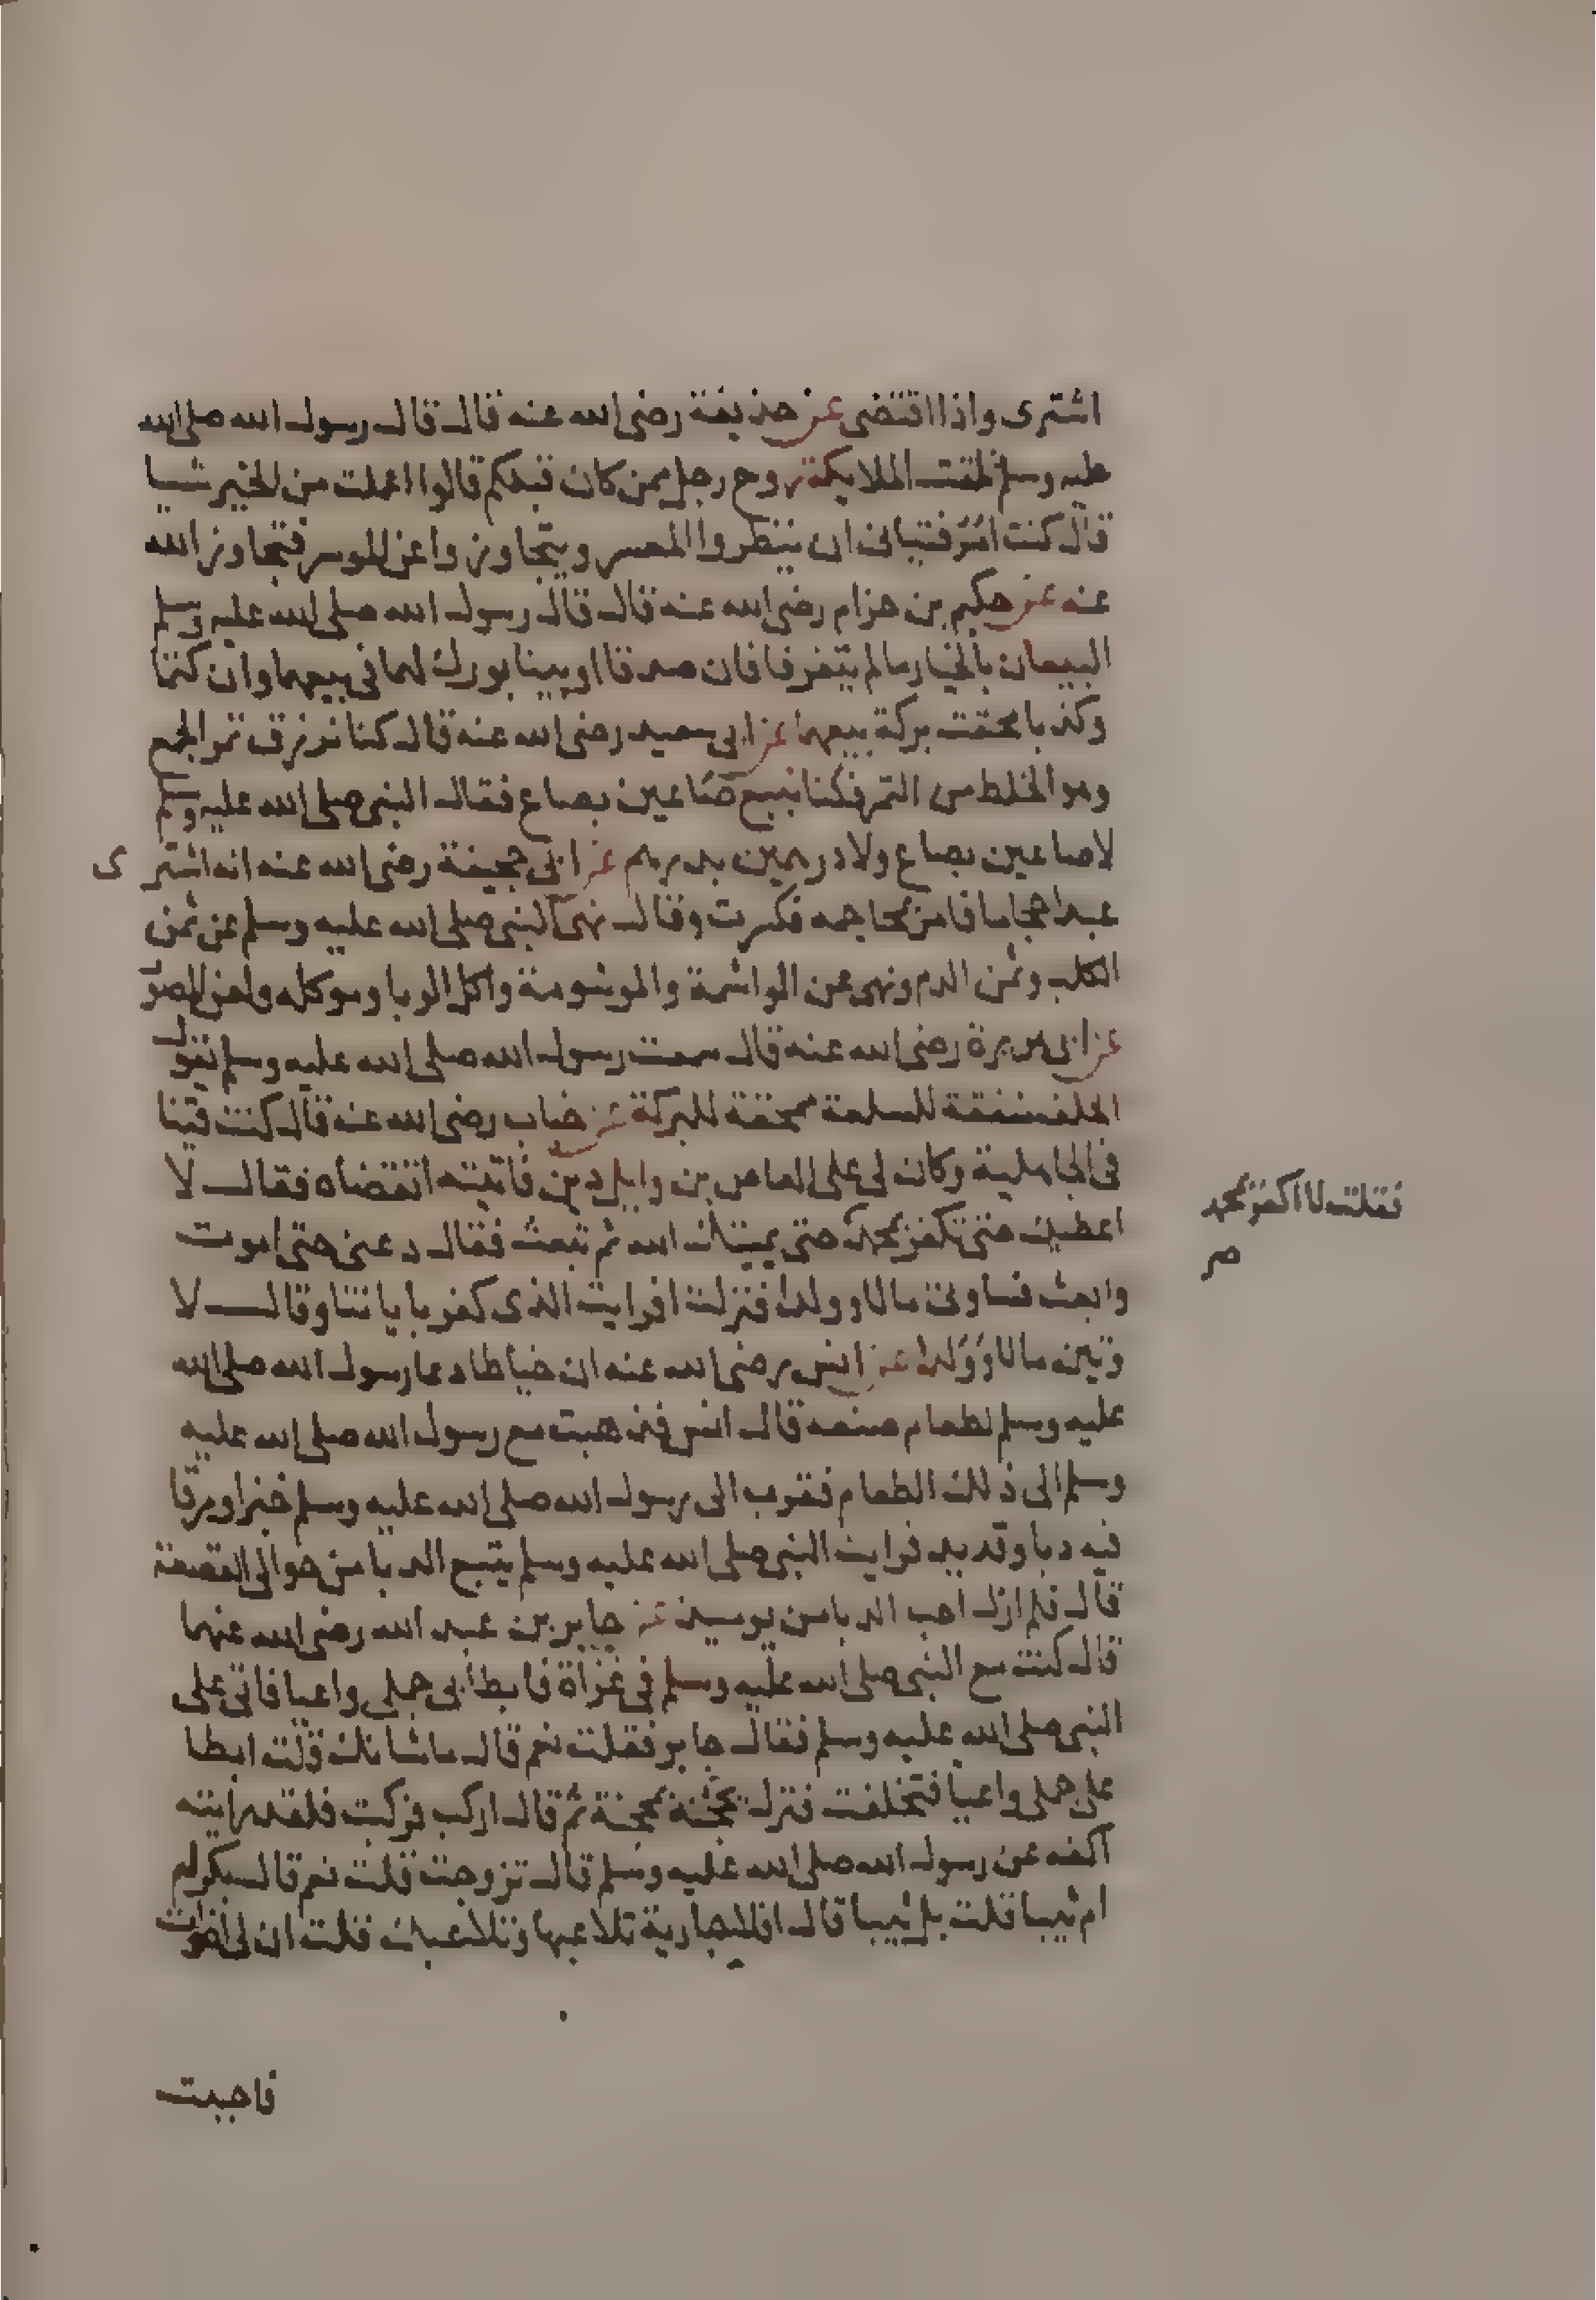 اشترى واذا اقتضى عن حذيفة رضى الله عنه قال قال رسول الله صلى الله
عليه وسلم تلقت الملايكة روح رجل ممن كان قبلكم قالوا اعملت من الخير شيا
قال كنت امر فتيانى ان ينظروا المعسر ويتجاوزوا عن الموسر فتجاوز الله
عنه عن حكيم بن حزام رضى الله عنه قال قال رسول الله صلى الله عليه وسلم
البيعان بالخيار ما لم يتفرقا فان صدقا او بينا بورك لهما فى بيعهما وان كتما
وكذبا محقت بركة بيعهما عن ابى سعيد رضى الله عنه قال كنا نرزق تمر الجمع
وهو الخلط من التمر فكنا نبيع صاعين بصاع فقال النبى صلى الله عليه وسلم
لا صاعين بصاع ولا درهمين بدرهم عن ابى جحيفة رضى الله عنه انه اشترى
عبدا حجاما فامر بمحاجمه فكسرت وقال نهى النبى صلى الله عليه وسلم عن ثمن
الكلب وثمن الدم ونهى عن الواشمة والموشومة واكل الربا وموكله ولعن المصور
عن ابى هريرة رضى الله عنه قال سمعت رسول الله صلى الله عليه وسلم يقول
الحلف منفقة للسلعة ممحقة للبركة عن خباب رضى الله عنه قال كنت قينا
فى الجاهلية وكان لى على العاص بن وايل دين فاتيته اتقضاه فقال لا
اعطيك حتى تكفر بمحمد حتى يميتك الله ثم تبعث فقال دعنى حتى اموت
فقلت لا اكفر بمحمد
صح
وابعث فساوتى مالا وولدا فنزلت افرايت الذى كفر باياتنا وقال لا
وتين مالا وولدا عن انس رضى الله عنه ان خياطا دعا رسول الله صلى الله
عليه وسلم لطعام صنعه قال انس فذهبت مع رسول الله صلى الله عليه
وسلم الى ذلك الطعام فقرب الى رسول الله صلى الله عليه وسلم خبزا ومرقا
فيه دبا وقديد فرايت النبى صلى الله عليه وسلم يتبع الدبا من حوالى القصعة
قال فلم ازل احب الدبا من يوميذ عن جابر بن عبد الله رضى الله عنهما
قال كنت مع النبى صلى الله عليه وسلم فى غزاة فابطا بى جملى واعيا فاتى على
النبى صلى الله عليه وسلم فقال جابر فقلت نعم قال ما شانك قلت ابطا
على جملى واعيا فتخلفت فنزل يحجنه بمحجنة ثم قال اركب فركبت فلقد رايته
اكفه عن رسول الله صلى الله عليه وسلم قال تزوجت قلت نعم قال بكرا
ام ثيبا قلت بل ثيبا قال افلا جارية تلاعبها وتلاعبك قلت ان لى اخوات
فاحببت